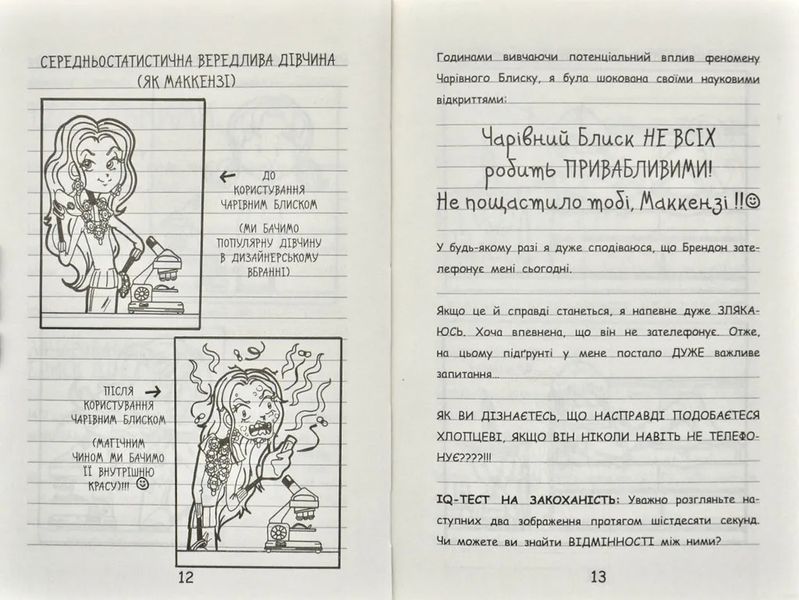 СЕРЕДНЬОСТАТИСТИЧНА ВЕРЕДЛИВА ДІВЧИНА
(ЯК МАККЕНЗІ)
ДО
КОРИСТУВАННЯ
ЧАРІВНИМ БЛИСКОМ
(МИ БАЧИМО
ПОПУЛЯРНУ ДІВЧИНУ
В ДИЗАЙНЕРСЬКОМУ
ВБРАННІ)
ПІСЛЯ
КОРИСТУВАННЯ
ЧАРІВНИМ БЛИСКОМ
(МАГІЧНИМ
ЧИНОМ МИ БАЧИМО
ЇЇ ВНУТРІШНЮ
КРАСУ)!!! ☺
12
Годинами вивчаючи потенціальний вплив феномену
Чарівного Блиску, я була шокована своїми науковими
відкриттями:
Чарівний Блиск НЕ ВСІХ
робить ПРИВАБЛИВИМИ!
Не пощастило тобі, Маккензі !!☺
У будь-якому разі я дуже сподіваюся, що Брендон зате-
лефонує мені сьогодні.
Якщо це й справді станеться, я напевне дуже ЗЛЯКА-
ЮСЬ. Хоча впевнена, що він не зателефонує. Отже,
на цьому підґрунті у мене постало ДУЖЕ важливе
запитання...
ЯК ВИ ДІЗНАЄТЕСЬ, ЩО НАСПРАВДІ ПОДОБАЄТЕСЯ
ХЛОПЦЕВІ, ЯКЩО ВІН НІКОЛИ НАВІТЬ НЕ ТЕЛЕФО-
НУЄ????!!!
IQ-ТЕСТ НА ЗАКОХАНІСТЬ: Уважно розгляньте на-
ступних два зображення протягом шістдесяти секунд.
Чи можете ви знайти ВІДМІННОСТІ між ними?
13